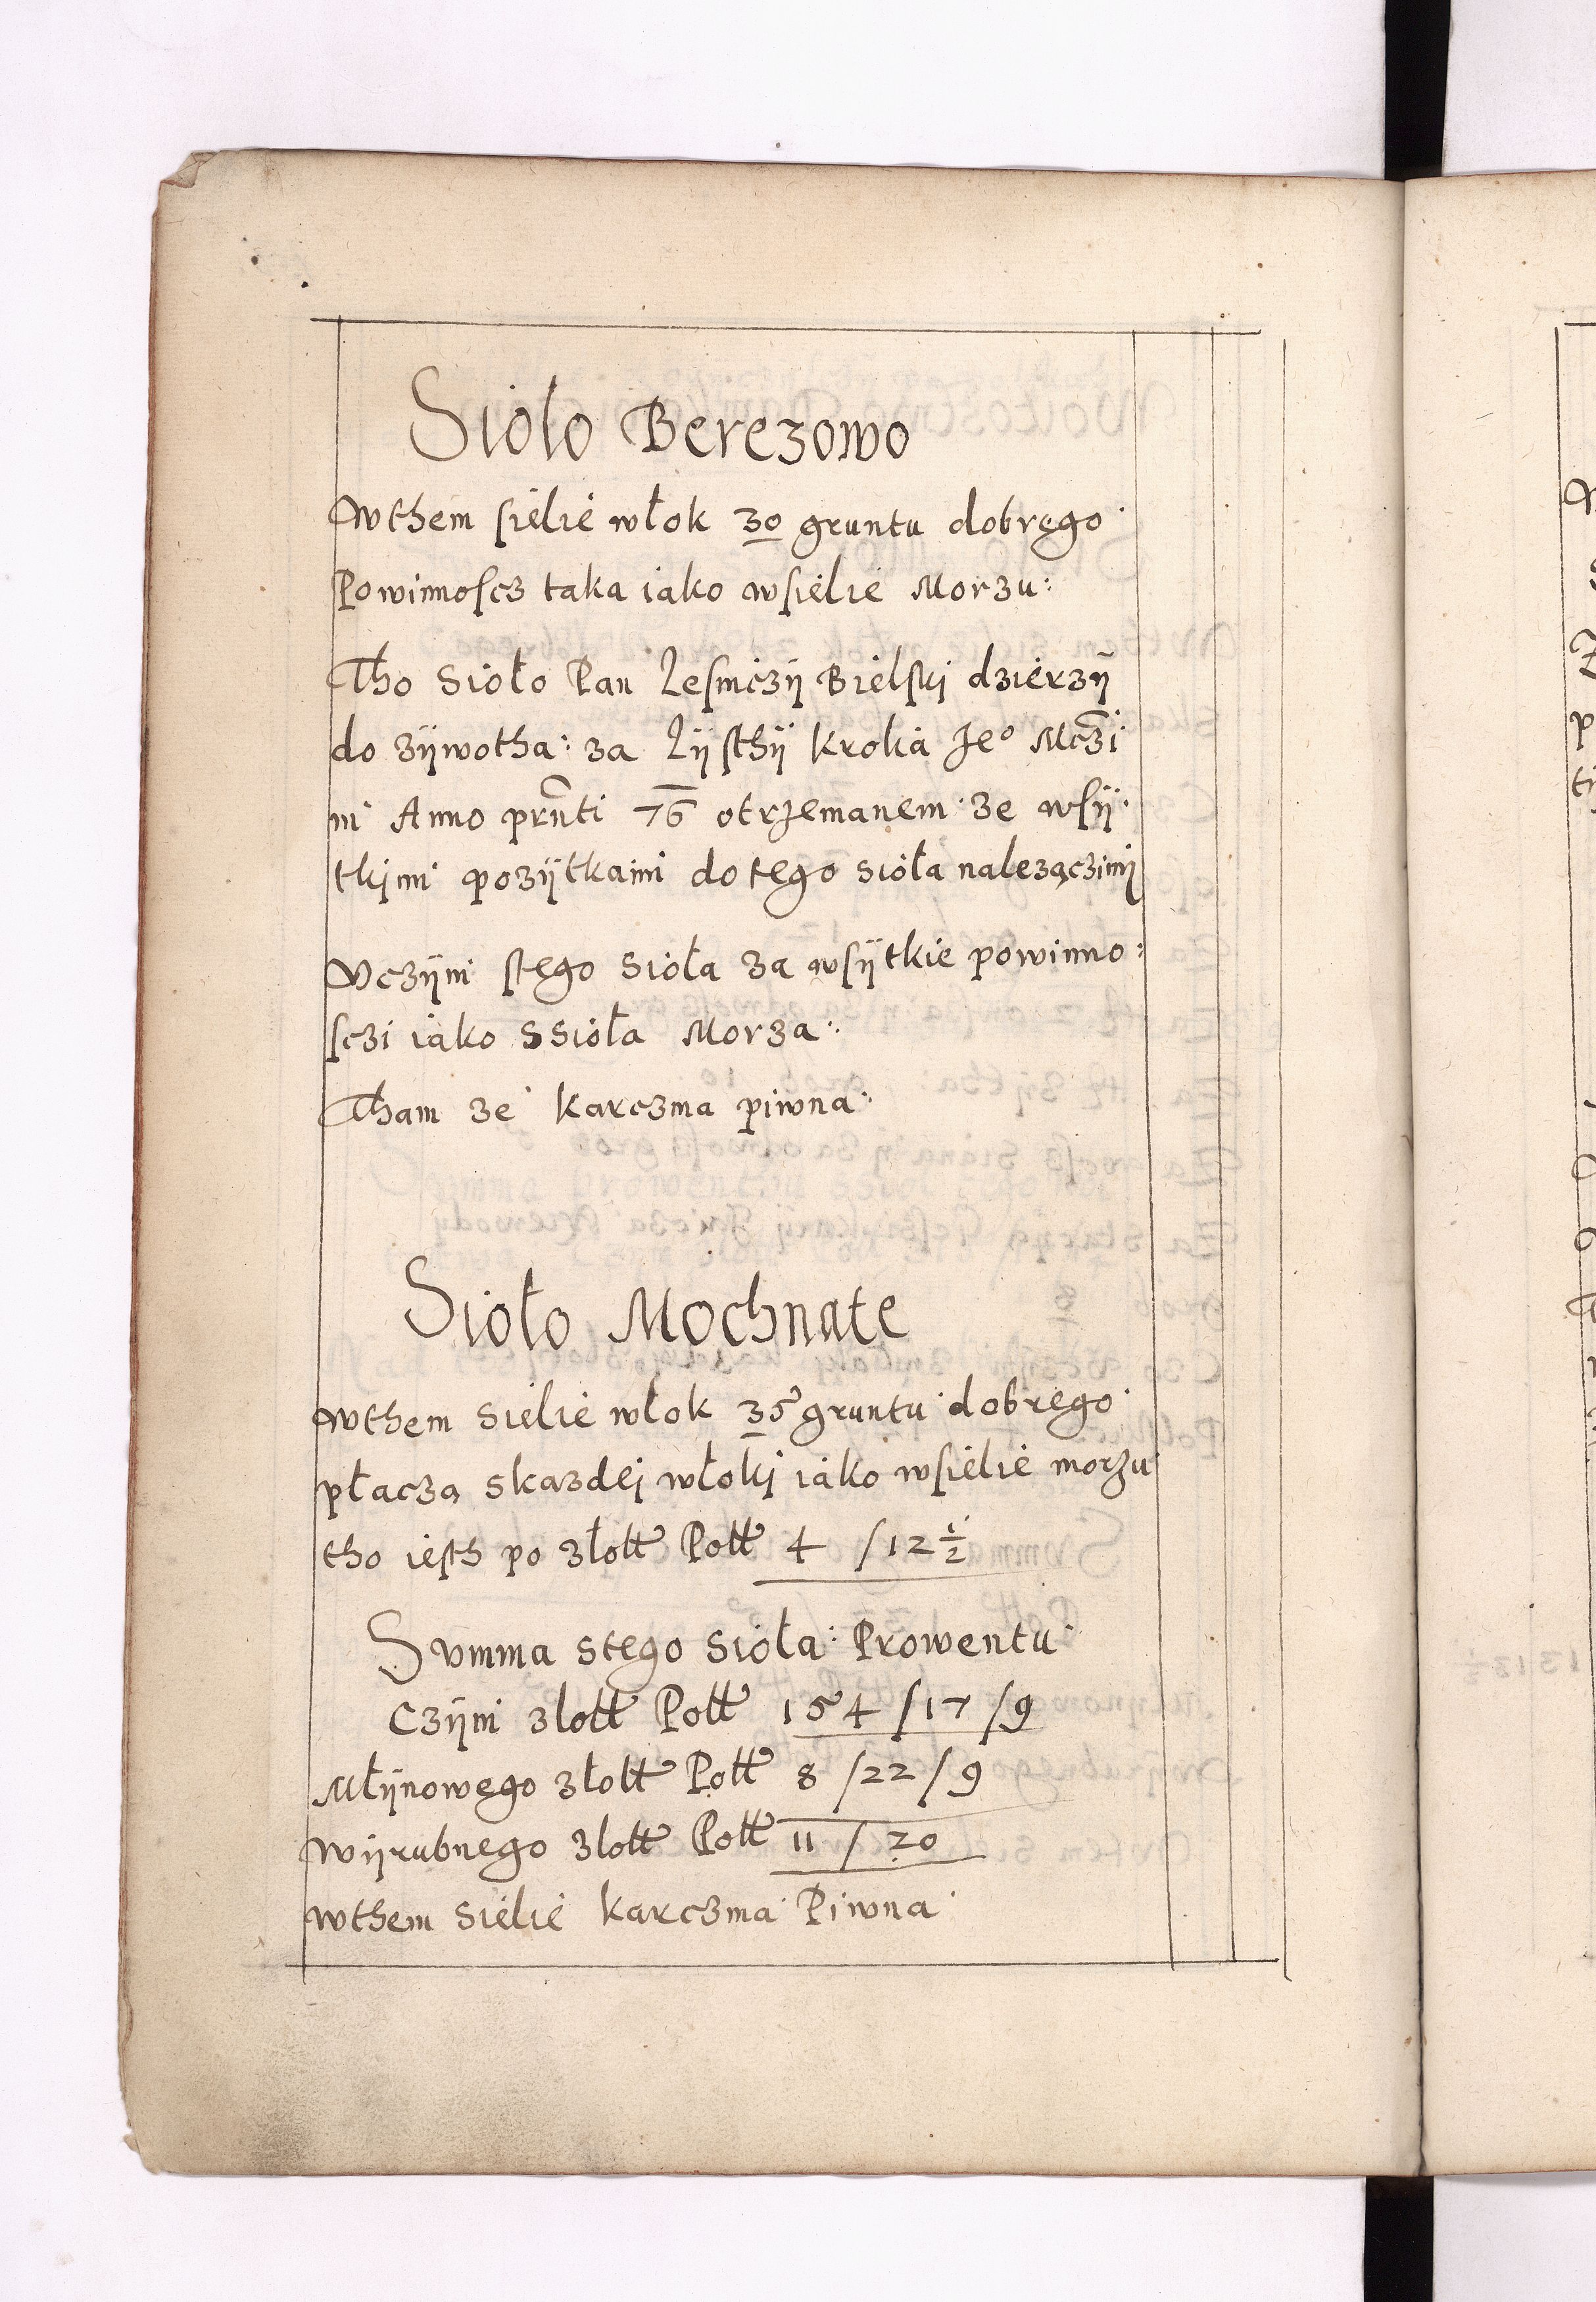 Sioło Berezowo
Wthem sielie włok 30 gruntu dobrego
Powinnoscz taka iako wsielie Morzu:
Tho Sioło Pan Lesniczÿ Bielski dzierzÿ
do zÿwotha: za Lÿsthÿ Krolia Je° Mczi
in Anno prnti 76 otrzemanem ze wsÿ
tkimi pozÿtkami do tego sioła nalezączimi
Vczÿni stego Sioła za wsÿtkie powinno:
sczi iako Ssioła Morza:
Tham ze karczma piwna:
Sioło Mochnate
Wthem Sielie włok 35 gruntu dobrego
płaczą skazdei włoki iako wsielie morzu
tho iesth po złott Poll 4 /12 ½
Summa stego Sioła: Prowentu
Czÿni złott Poll 154 /17 /9
Młÿnowego złott Poll 8 /22 /9
Wÿrubnego złott Poll 11 / 20
Wthem Sielie karczma Piwna